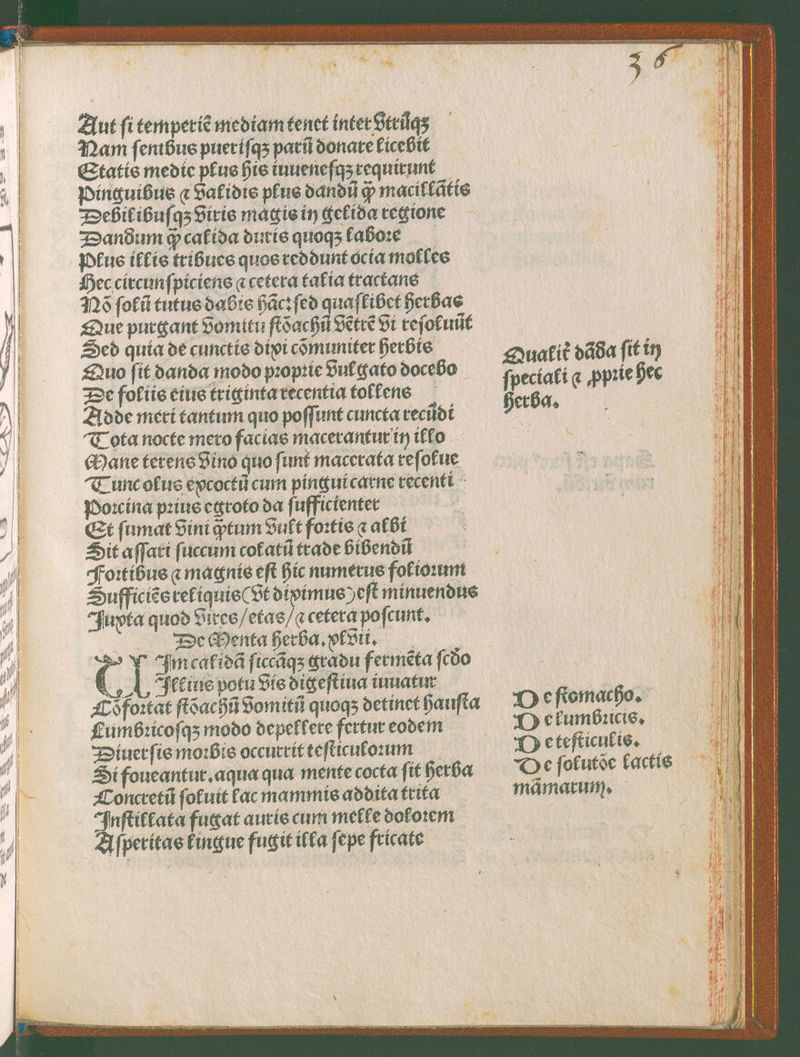 36
Aut ſi temperiē mediam tenet inter vtrūqꝫ
Nam ſenibus pueriſqꝫ parū donare licebit
Etatis medie plus his iuueneſqꝫ requirunt
Pinguibus ⁊ validis plus dandū qͫ̄ macillātis
Debilibuſqꝫ viris magis in gelida regione
Dandum qͫ̄ calida duris quoqꝫ labore
Plus illis tribues quos reddunt ocia molles
Hec circunſpiciens ⁊ cetera talia tractans
Nō ſolū tutus dabis hāc: ſed quaſlibet herbas
Que purgant vomitu ſtōachū vētrē vi reſoluūt
Sed quia de cunctis dixi cōmuniter herbis
Quo ſit danda modo proprie vulgato docebo
De foliis eius triginta recentia tollens
Adde meri tantum quo poſſunt cuncta recūdi
Tota nocte mero facias macerantur in illo
Mane terens vino quo ſunt macerata reſolue
Tunc olus excoctū cum pingui carne recenti
Porcina prius egroto da ſufficienter
Et ſumat vini qͫ̄tum vult fortis ⁊ albi
Sit aſſari ſuccum colatū trade bibendū
Fortibus ⁊ magnis eſt hic numerus foliorum
Sufficiēs reliquis (vt diximus) eſt minuendus
Juxta quod vires/etas/⁊ cetera poſcunt.
De Menta herba. xlvii.
Im calidā ſiccāqꝫ gradu fermēta ſcd̄o
Illius potu vis digeſtiua iuuatur
Cōfortat ſtōachū vomitū quoqꝫ detinet hauſta
Lumbricoſqꝫ modo depellere fertur eodem
Diuerſis morbis occurrit teſticulorum
Si foueantur. aqua qua mente cocta ſit herba
Concretū ſoluit lac mammis addita trita
Inſtillata fugat auris cum melle dolorem
Aſperitas lingue fugit illa ſepe fricate
Qualit̄ dāda ſit in
ſpeciali ⁊ ꝓprie hec
herba.
De ſtomacho.
De lumbricis.
De teſticulis.
De ſolutōe lactis
māmarum.